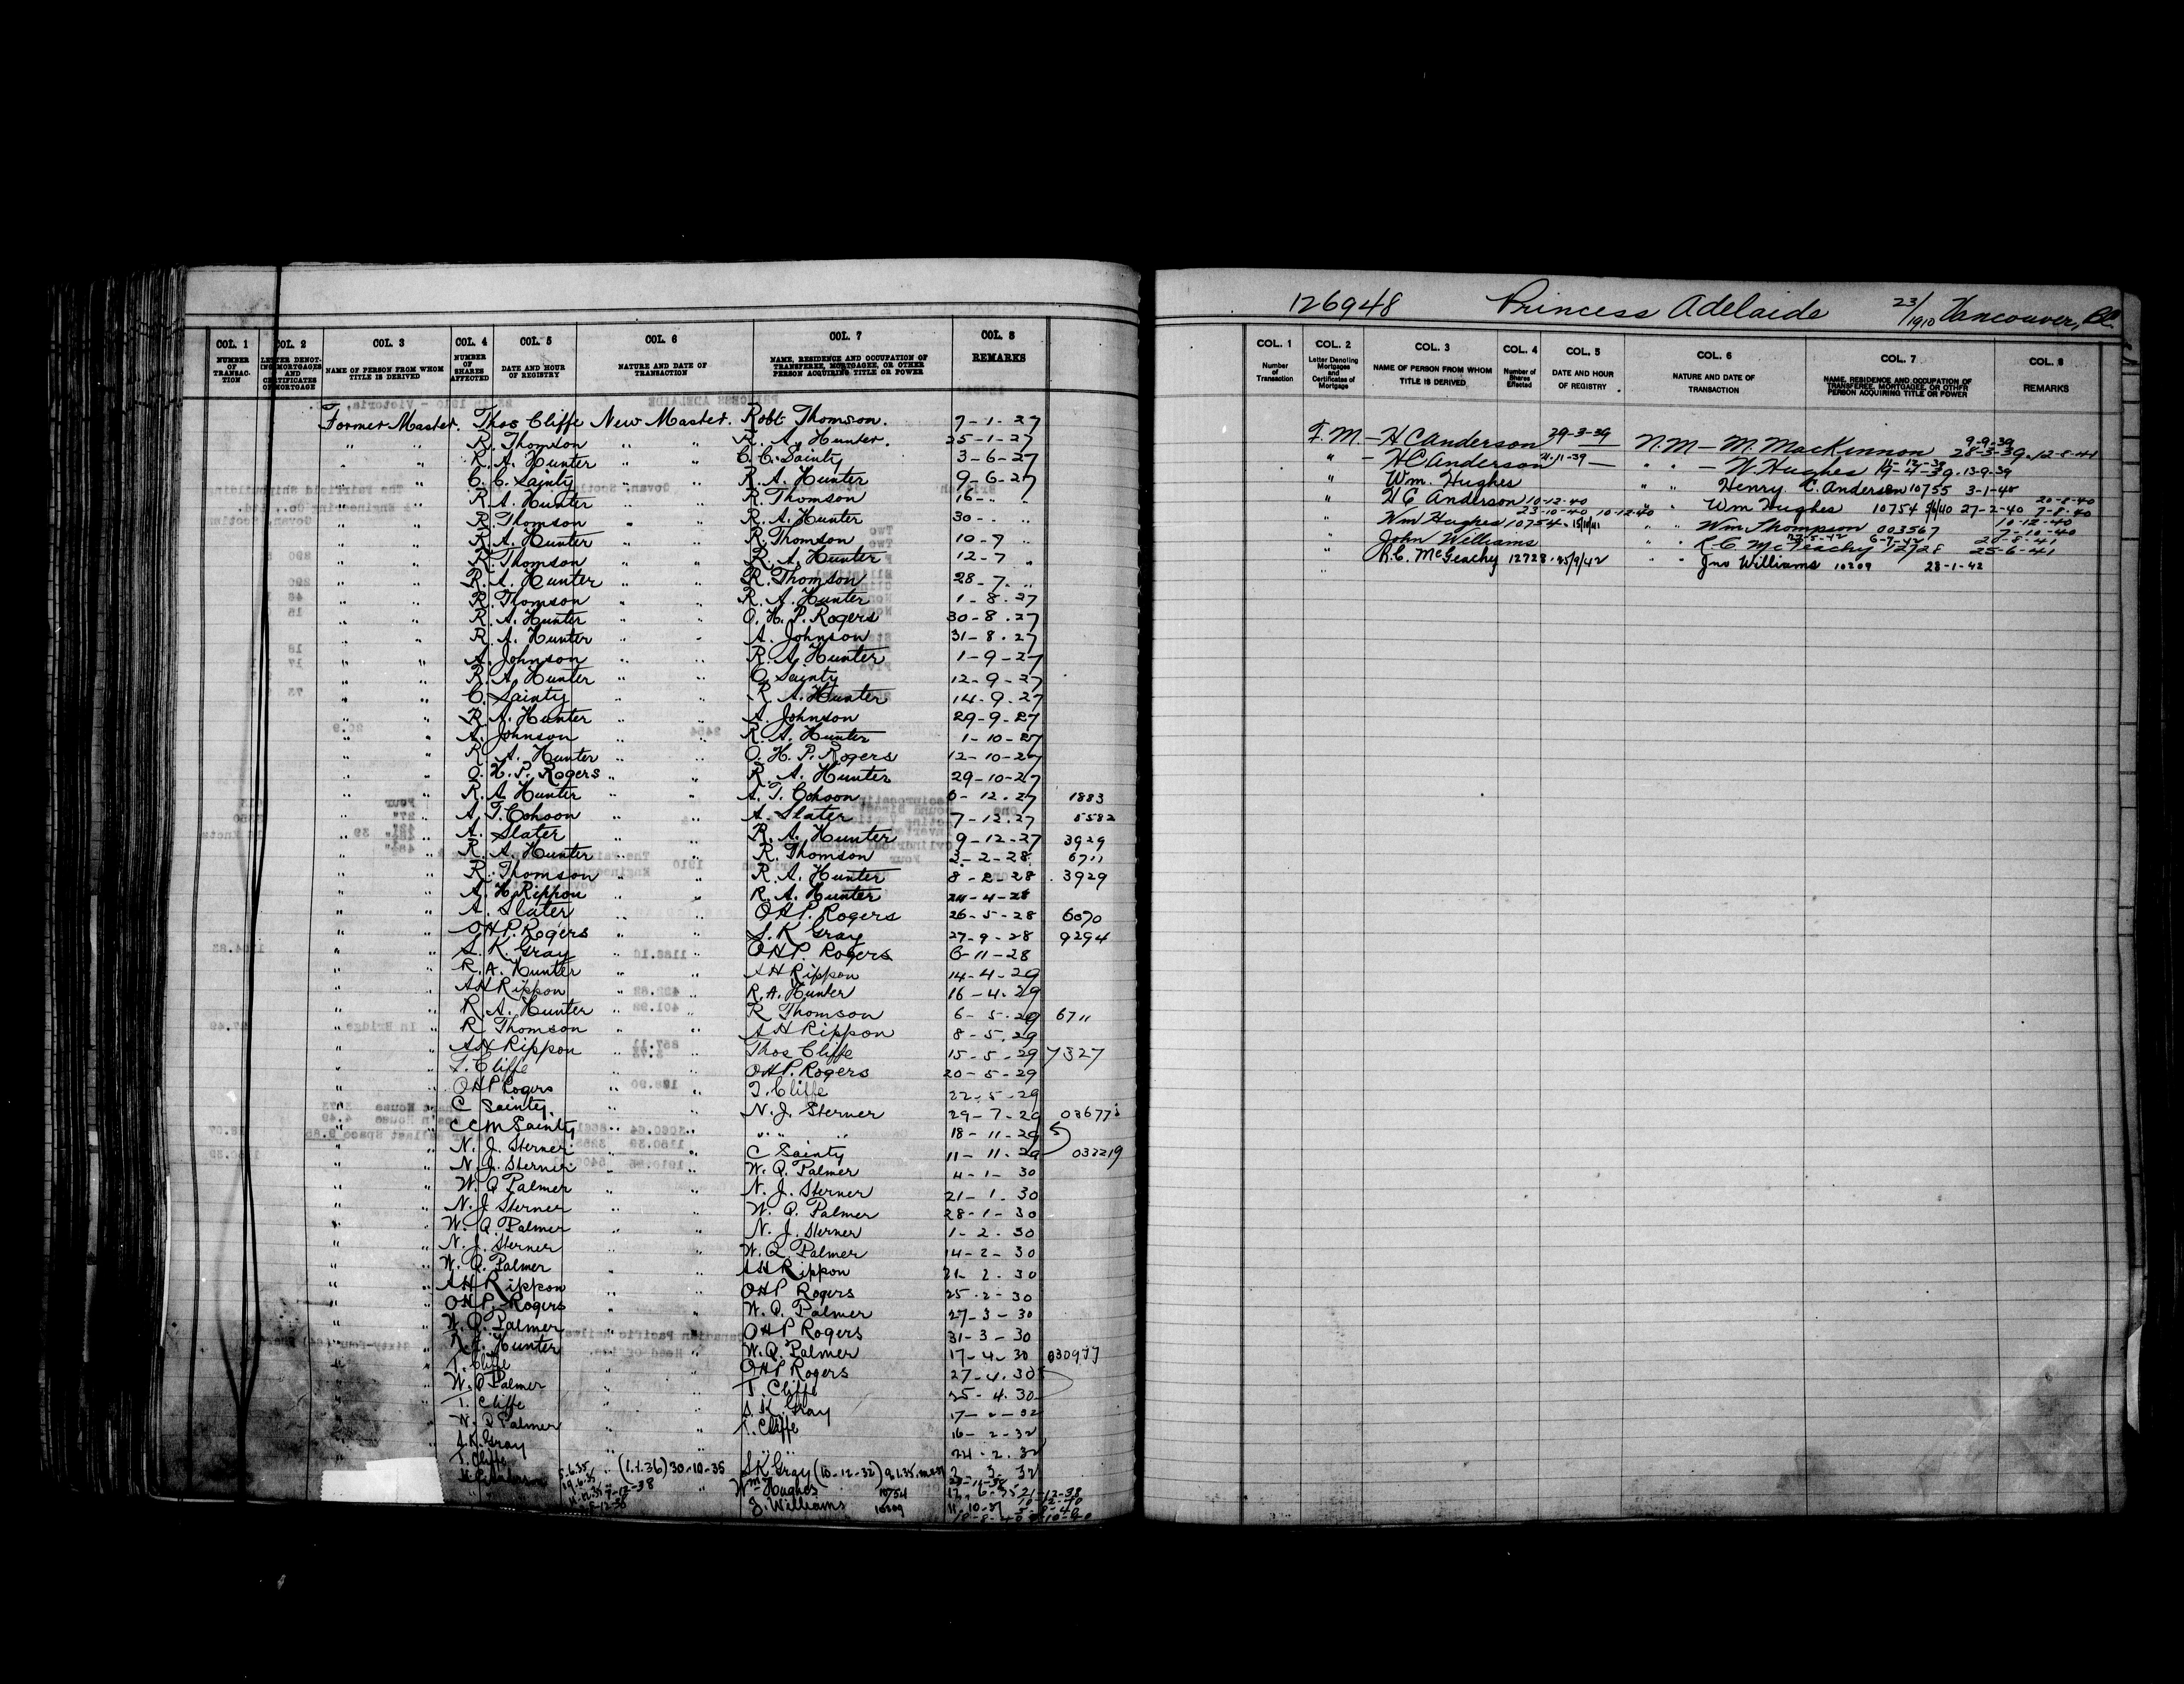 COL. 1 COL. 2 COL. 3 COL. 4 COL. 5 COL. 6 COL. 7 COL. 8
NUMBER OF TRANSAC- TION LETTER DENOT- ING MORTGAGES AND CERTIFICATES OF MORTGAGE NAME OF PERSON FROM WHOM TITLE IS DERIVED NUMBER OF SHARES AFFECTED DATE AND HOUR OF REGISTRY NATURE AND DATE OF TRANSACTION NAME, RESIDENCE AND OCCUPATION OF TRANSFEREE, MORTGAGEE, OR OTHER PERSON ACQUIRING TITLE OR POWER REMARKS
Former Master. Thos Cliffe New Master. Robt Thomson. 7-1-27
" " R. Thomson " " R. A. Hunter. 25-1-27
" " R. A. Hunter " " C. C. Sainty 3-6-27
" " C. C. Sainty " " R. A. Hunter 9-6-27
" " R. A. Hunter " " R. Thomson 16- " "
" " R. Thomson " " R. A. Hunter 30- " "
" " R. A. Hunter " " R. Thomson 10-7 "
" " R. Thomson " " R. A. Hunter 12-7 "
" " R. A. Hunter " " R. Thomson 28-7. "
" " R. Thomson " " R. A. Hunter 1-8-27
" " R. A. Hunter " " O. H. P. Rogers 30-8-27
" " R. A. Hunter " " A. Johnson 31-8-27
" " A. Johnson " " R. A. Hunter 1-9-27
" " R. A. Hunter " " C. Sainty 12-9-27
" " C. Sainty " " R. A. Hunter 14-9-27
" " R. A. Hunter " " A. Johnson 29-9-27
" " A. Johnson " " R. A. Hunter 1-10-27
" " R. A. Hunter " " O. H. P. Rogers 12-10-27
" " O. H. P. Rogers " " R. A. Hunter 29-10-27
" " R. A. Hunter " " A. T. Cohoon 6-12-27 1883
" " A. T. Cohoon " " A. Slater 7-12-27 5582
" " A. Slater " " R. A. Hunter 9-12-27 3929
" " R. A. Hunter " " R. Thomson 3-2-28 6711
" " R. Thomson " " R. A. Hunter 8-2-28 3929
" " A. H. Rippon " " R. A. Hunter 24-4-28
" " A. Slater " " OHP. Rogers 26-5-28 6070
" " OHP. Rogers " " S. K Gray 27-9-28 9294
" " S. K. Gray " " OHP. Rogers 6-11-28
" " R. A. Hunter " " AH Rippon 14-4-29
" " AH Rippon " " R. A. Hunter 16-4-29
" " R. A. Hunter " " R Thomson 6-5-29 6711
" " R Thomson " " AH Rippon 8-5-29
" " AH Rippon " " Thos Cliffe 15-5-29 7327
" " T. Cliffe " " OHP. Rogers 20-5-29
" " OHP Rogers " " T. Cliffe 22-5-29
" " C Sainty. " " N. J. Sterner 29-7-29
" " CCM Sainty " " " " " 18-11-29
" " N. J. Sterner " " C Sainty 11-11-29 032219
" " N. J. Sterner " " W. Q. Palmer 4-1-30
" " W. Q Palmer " " N. J. Sterner 21-1-30
" " N. J Sterner " " W. Q. Palmer 28-1-30
" " W. Q Palmer " " N. J. Sterner 1-2-30
" " N. J. Sterner " " W. Q. Palmer 14-2-30
" " W. Q. Palmer " " AH Rippon 21-2-30
" " AH Rippon " " OHP Rogers 25-2-30
" " OHP. Rogers " " W. Q. Palmer 27-3-30
" " W. Q. Palmer " " OHP Rogers 31-3-30
" " R A. Hunter " " W. Q. Palmer 17-4-30
" " T. Cliffe " " OHP Rogers 27-4-30
" " W. Q Palmer " " T. Cliffe 25-4-30
" " T. Cliffe " " S. K. Gray 17-2-32
" " W. Q Palmer " " T. Cliffe 16-2-32
" " S. K. Gray " " " " 24-2-32
" " T. Cliffe (1.1.36) 30-10-35 S K Gray (10-12-32) 2-3-32
Wm Hughes 10754
J. Williams 10209
126948 Princess Adelaide 23/1910 Vancouver, BC.
COL. 1 COL. 2 COL. 3 COL. 4 COL. 5 COL. 6 COL. 7 COL. 8
Number of Transaction Letter Denoting Mortgages and Certificates of Mortgage NAME OF PERSON FROM WHOM TITLE IS DERIVED Number of Shares Effected DATE AND HOUR OF REGISTRY NATURE AND DATE OF TRANSACTION NAME, RESIDENCE AND OCCUPATION OF TRANSFEREE, MORTGAGEE, OR OTHER PERSON ACQUIRING TITLE OR POWER REMARKS
F. M. - H C Anderson 29-3-39 N. M - M. MacKinnon 9-9-39 28-3-39. 12-8-41
" - H C Anderson 21-11-39 " " - W. Hughes 19-4-39. 13-9-39
" Wm. Hughes " " Henry. C. Anderson 10755 3-1-40
" H C Anderson 10-12-40 " " Wm Hughes 10754 27-2-40 7-8-40 20-8-40
23-10-40 10-12-40
" Wm Hughes 10754 15/10/41 " " Wm Thompson 003567 7-10-40 10-12-40
" John Williams " " R C McGeachy 12728 25-6-41
" R. C. McGeachy 12728. 25/9/42 " " Jno Williams 10209 28-1-42